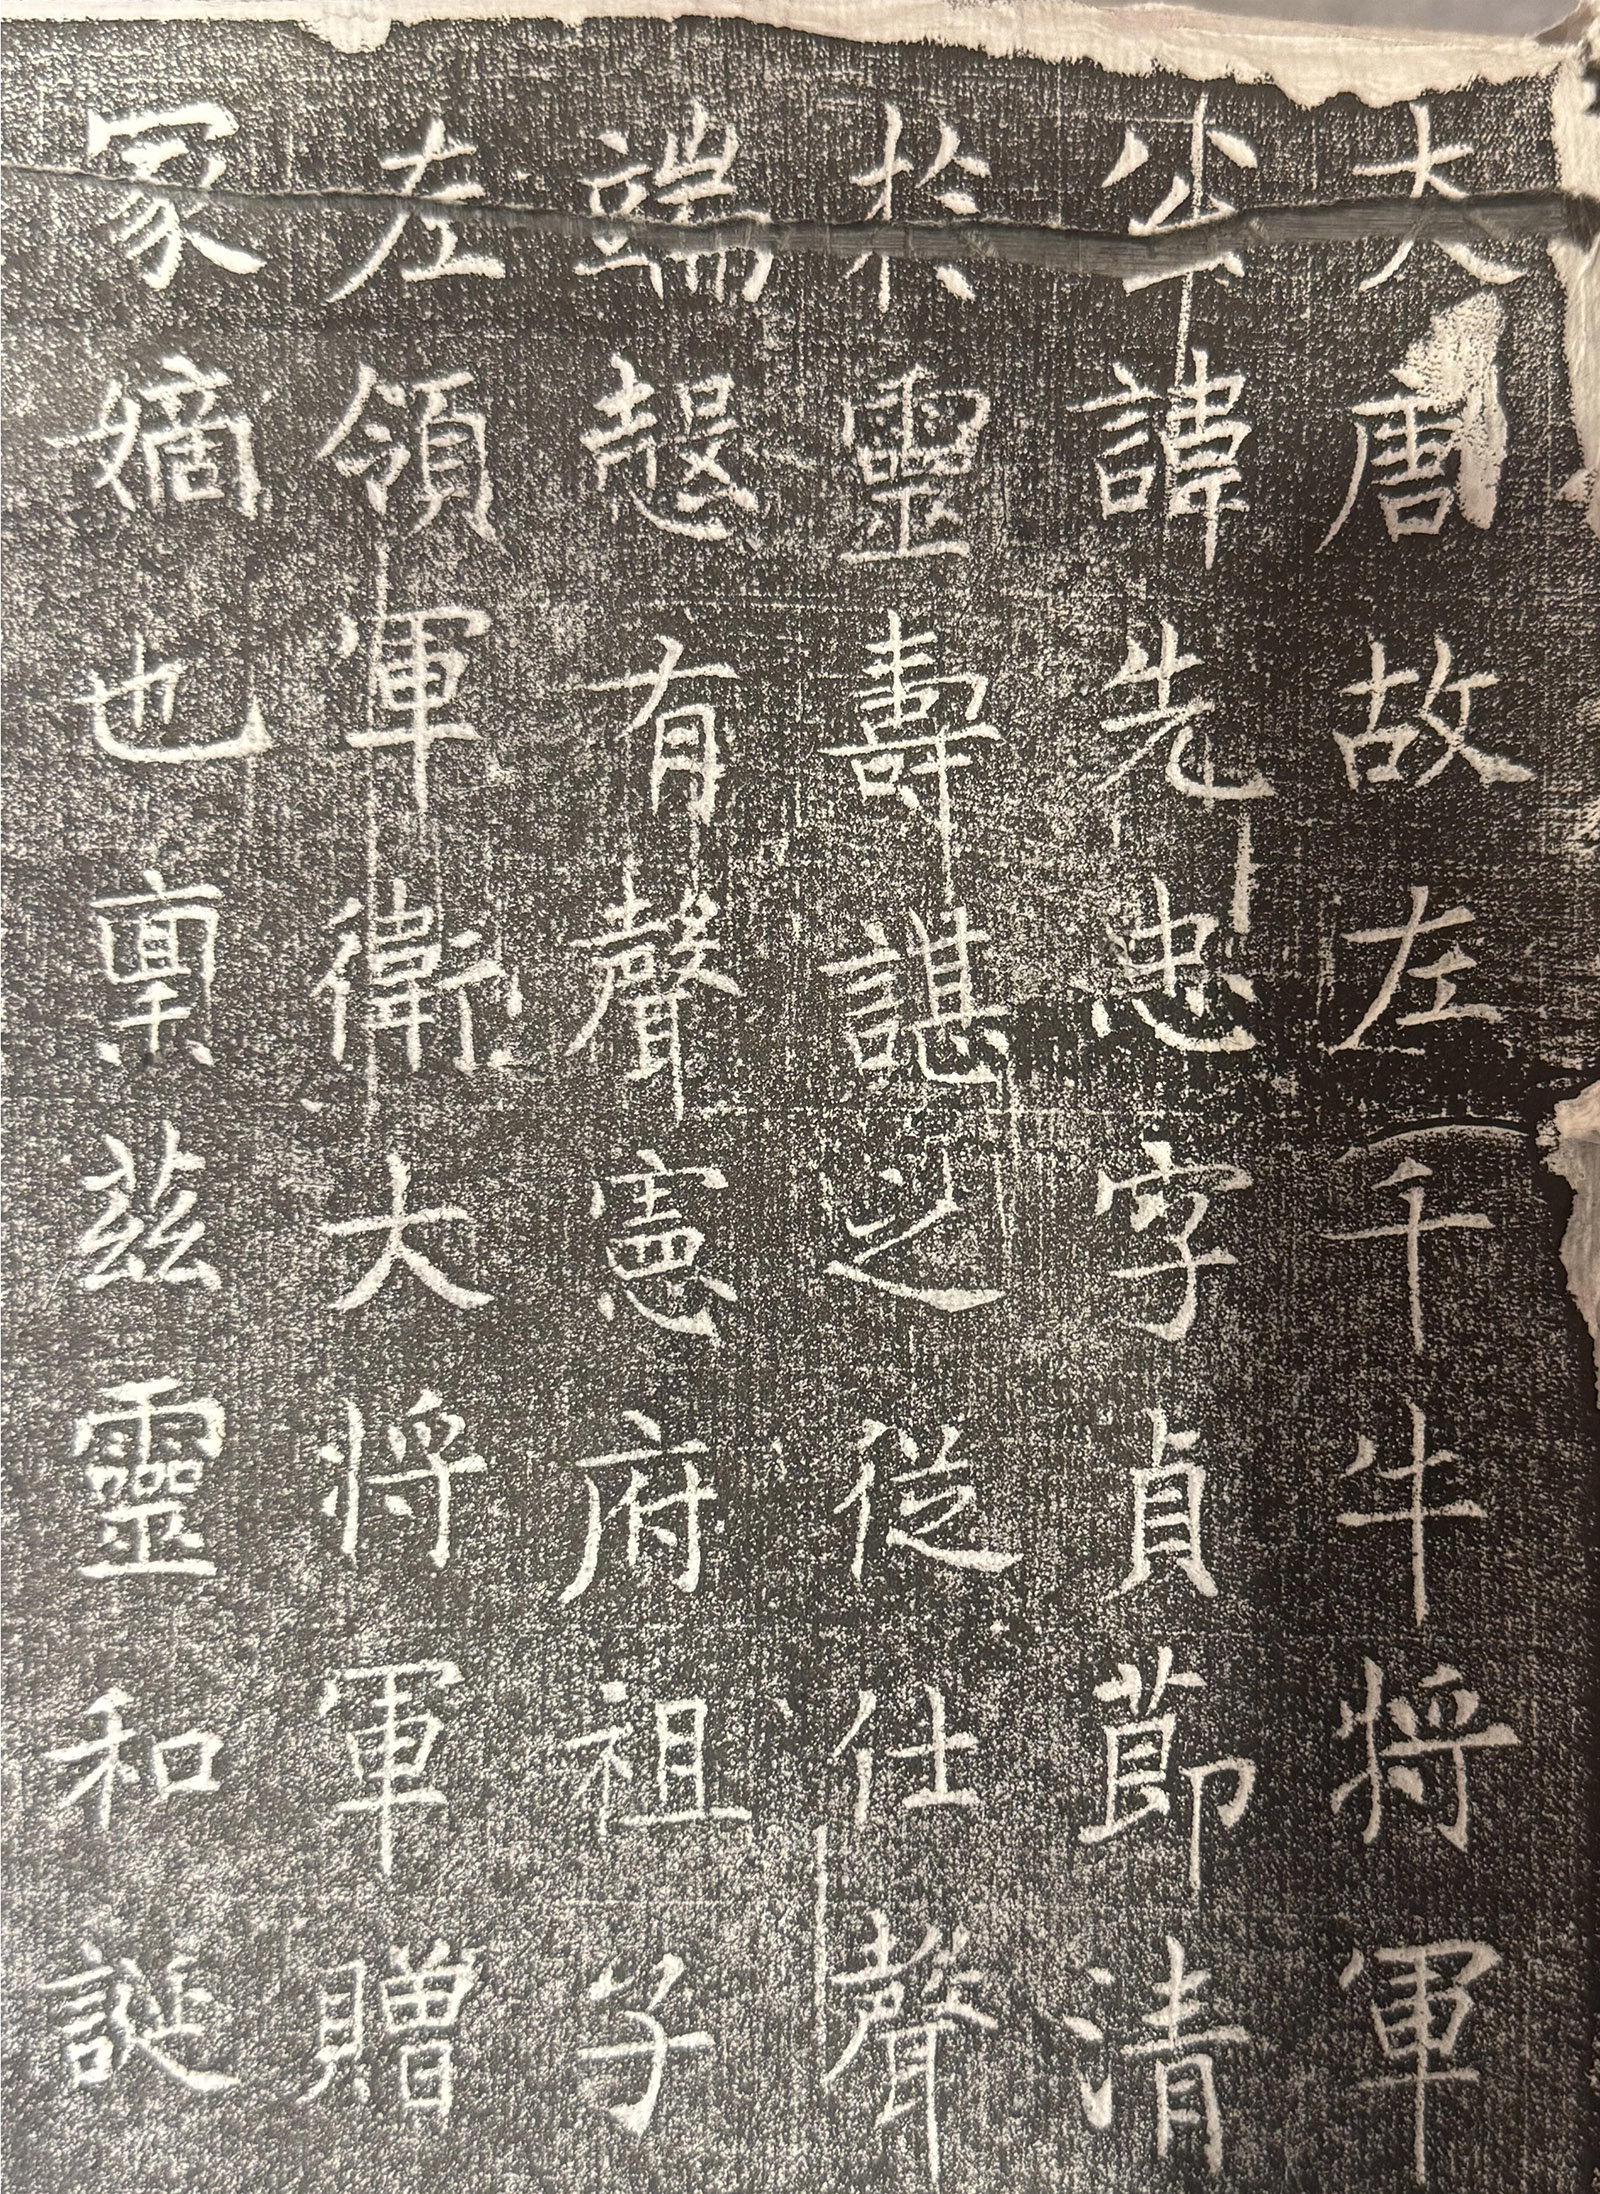 大唐故左千牛将軍
公諱先忠字貞莭清
於靈壽諶之從仕聲
端慤有聲憲府祖子
左領軍衛大将軍贈
冢嫡也禀茲靈和誕